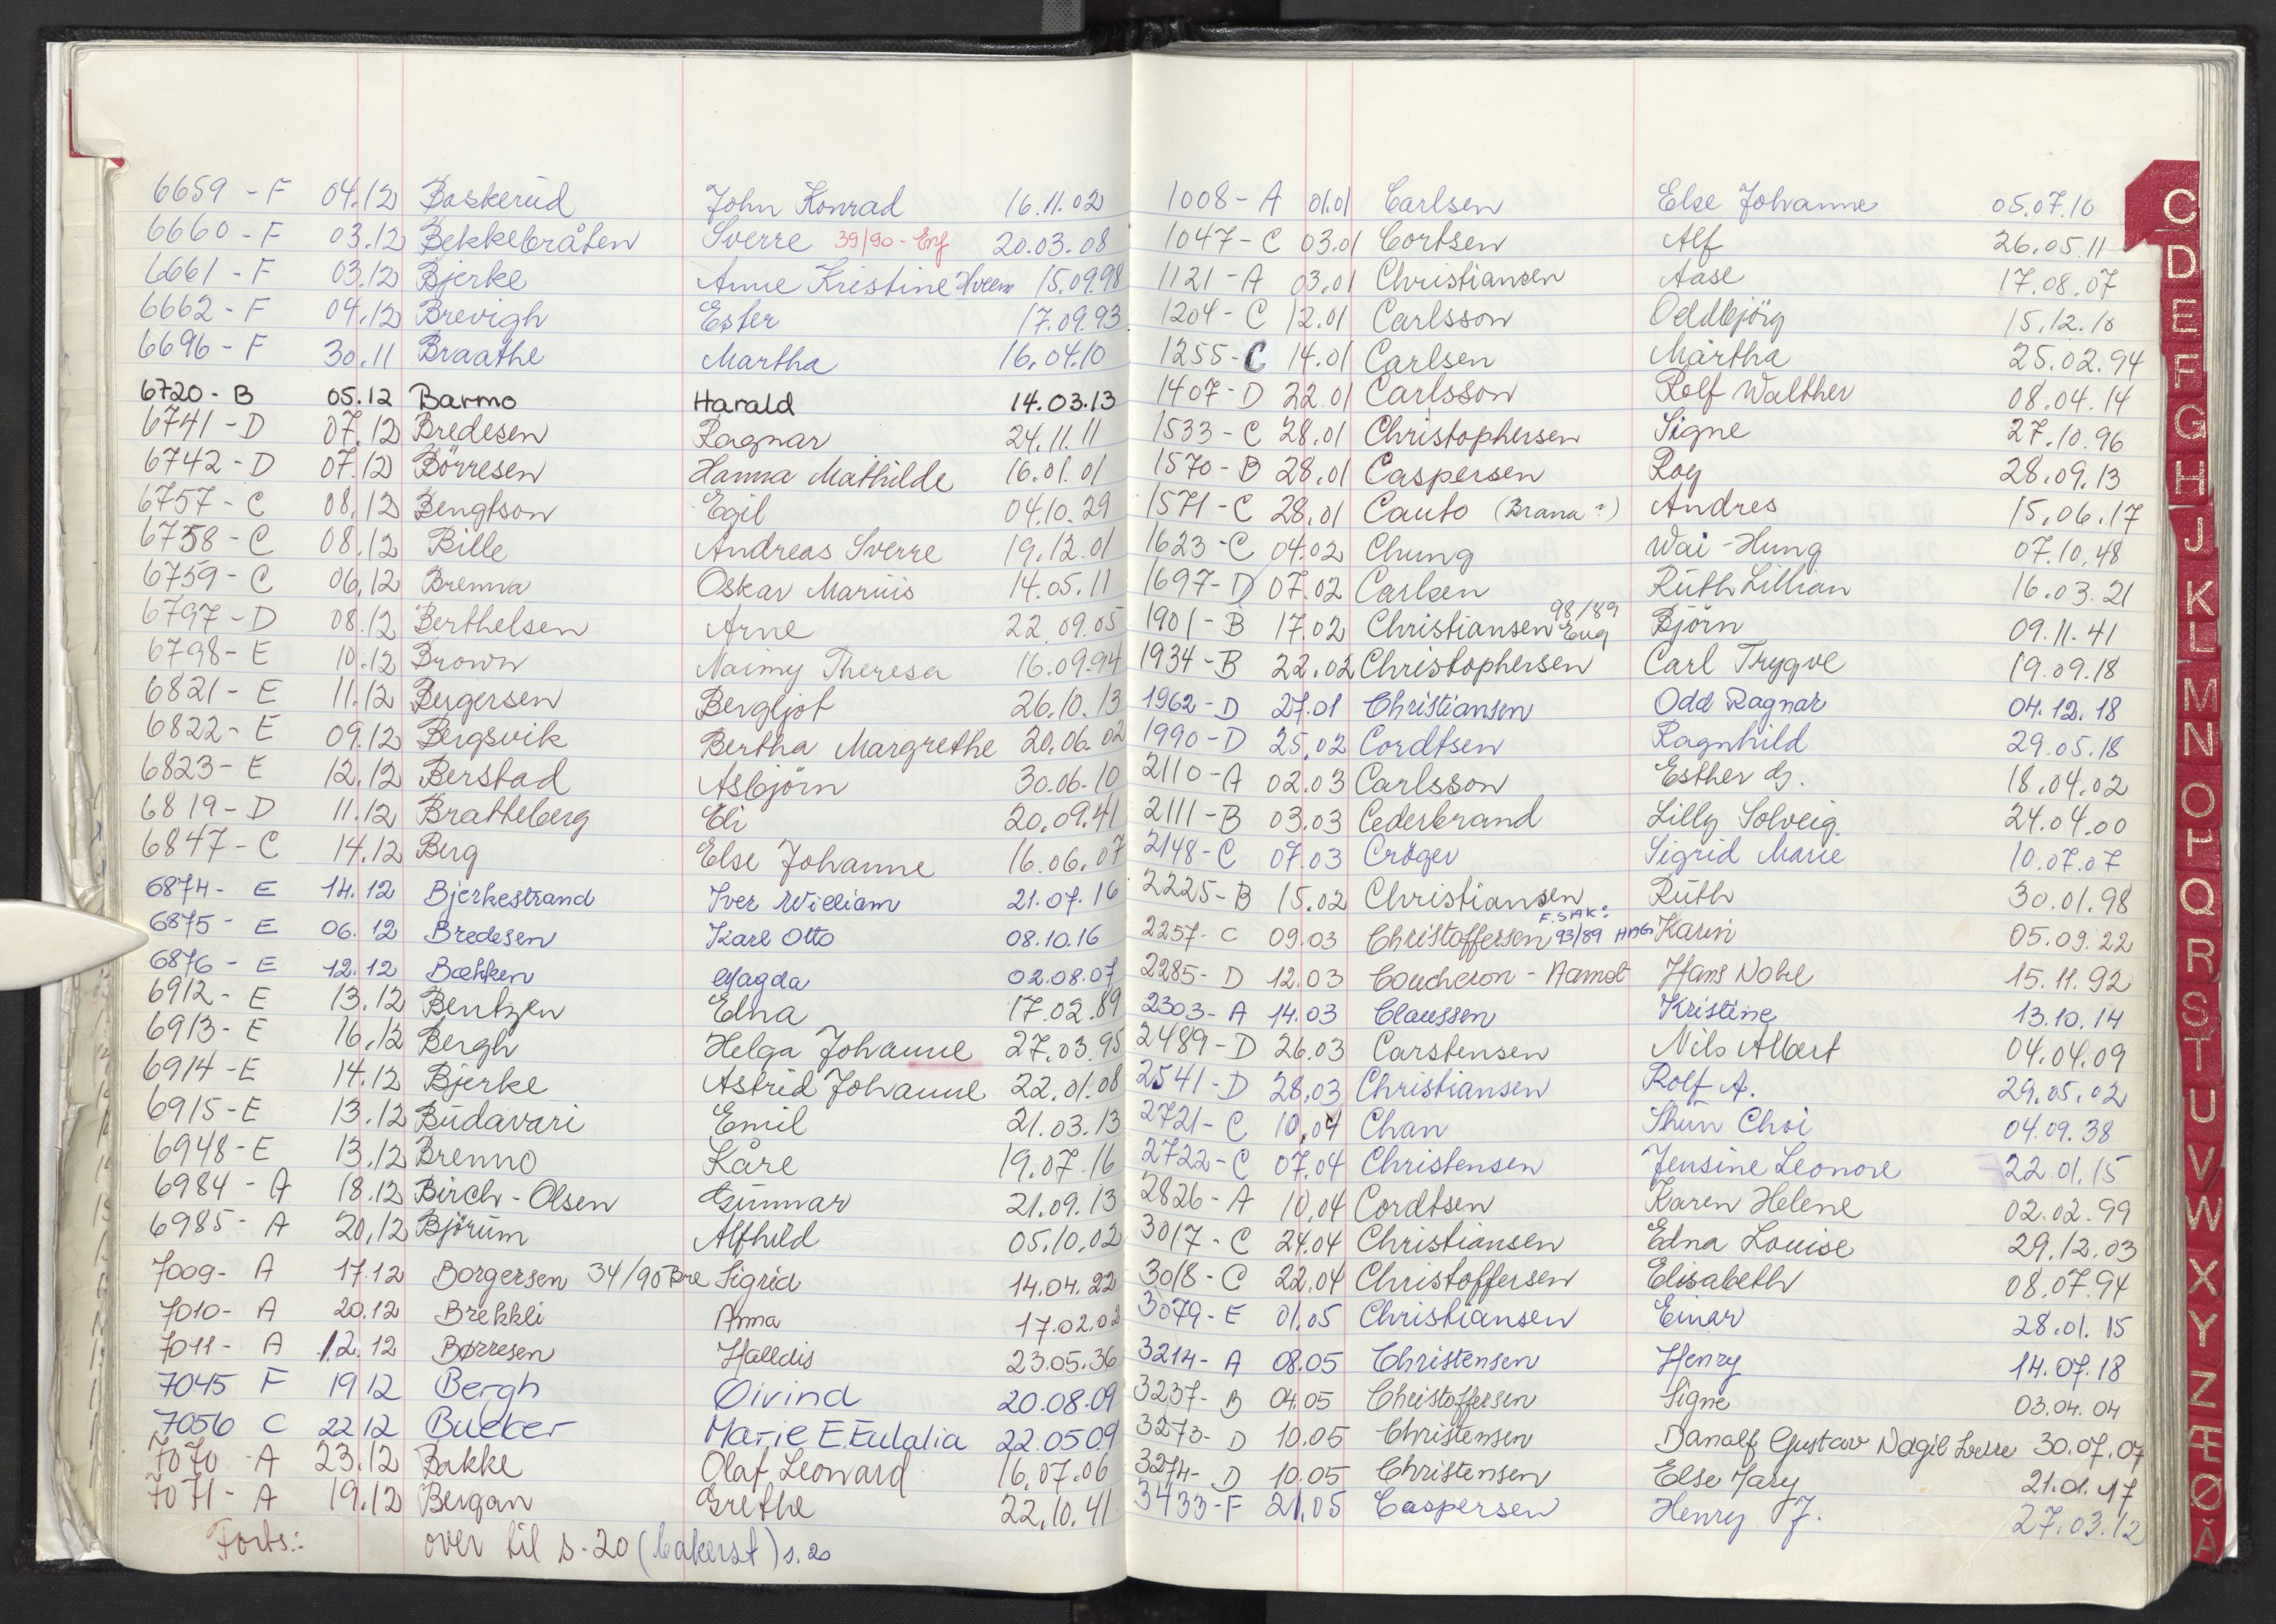 6659 - F 04.12 Baskerud John Konrad 16.11.02
6660 - F 03.12 Bekkebråten Sverre 39/90 - Enf 20.03.08
6661 - F 03.12 Bjerke Anne Kristine Hveem 15.09.98
6662 - F 04.12 Brevigh Ester 17.09.93
6696 - F 30.11 Braathe Martha 16.04.10
6720 - B 05.12 Barmo Harald 14.03.13
6741 - D 07.12 Bredesen Ragnar 24.11.11
6742 - D 07.12 Börresen Hanna Mathilde 16.01.01
6757 - C 08.12 Bengtson Egil 04.10.29
6758 - C 08.12 Bille Andreas Sverre 19.12.01
6759 - C 06.12 Brenna Oskar Marius 14.05.11
6797 - D 08.12 Berthelsen Arne 22.09.05
6798 - E 10.12 Brown Naimy Theresa 16.09.94
6821 - E 11.12 Bergersen Bergljot 26.10.13
6822 - E 09.12 Bergsvik Bertha Margrethe 20.06.02
6823 - E 12.12 Berstad Asbjörn 30.06.10
6819 - D 11.12 Bratteberg Eli 20.09.41
6847 - C 14.12 Berg Else Johanne 16.06.07
6874 - E 14.12 Bjerkestrand Iver William 21.07.16
6875 - E 06.12 Bredesen Karl Otto 08.10.16
6876 - E 12.12 Bækken Magda 02.08.07
6912 - E 13.12 Bentzen Edna 17.02.89
6913 - E 16.12 Bergh Helga Johanne 27.03.95
6914 - E 14.12 Bjerke Astrid Johanne 22.01.08
6915 - E 13.12 Budavari Emil 21.03.13
6948 - E 13.12 Brenno Kåre 19.07.16
6984 - A 18.12 Birch - Olsen Gunnar 21.09.13
6985 - A 20.12 Björum Alfhild 05.10.02
7009 - A 17.12 Borgersen 34/90 Bre Sigrid 14.04.22
7010 - A 20.12 Brekkli Anna 17.02.02
7011 - A 12.12 Børresen Halldis 23.05.36
7045 F 19 12 Bergh Øivind 20.08.09
7056 C 22 12 Bucker Marie E. Eulalia 22.05 09
7070 - A 23.12 Bakke Olaf Leonard 16.07.06
7071 - A 19.12 Bergan Grethe 22.10.41
Forts.: over til s. 20 (bakerst) s. 20
1008 - A 01.01 Carlsen Else Johanne 05.07.10
1047 - C 03.01 Cortsen Alf 26.05.11
1121 - A 03.01 Christiansen Aase 17.08.07
1204 - C 12.01 Carlsson Oddbjörg 15.12.10
1255 - C 14.01 Carlsen Märtha 25.02.94
1407 - D 22.01 Carlsson Rolf Walther 08.04.14
1533 - C 28.01 Christophersen Signe 27.10.96
1570 - B 28.01 Caspersen Roy 28.09.13
1571 - C 28.01 Cauto (Brana ?) Andres 15.06.17
1623 - C 04.02 Chung Wai - Hung 07.10.48
1697 - D 07.02 Carlsen Ruth Lillian 16.03.21
1901 - B 17.02 Christiansen 98/89 Eug Björn 09.11.41
1934 - B 22.02 Christophersen Carl Trygve 19.09.18
1962 - D 27.01 Christiansen Odd Ragnar 04.12.18
1990 - D 25.02 Cordtsen Ragnhild 29.05.18
2110 - A 02.03 Carlsson Esther dj. 18.04.02
2111 - B 03.03 Cederbrand Lilly Solveig 24.04.00
2148 - C 07.03 Cröger Sigrid Marie 10.07.07
2225 - B 15.02 Christiansen Ruth 30.01.98
2257 - C 09.03 Christoffersen F.SAK: 93/89 HAG Karin 05.09.22
2285 - D 12.03 Coucheron - Aamot Hans Nobel 15.11.92
2303 - A 14.03 Claussen Kristine 13.10.14
2489 - D 26.03 Carstensen Nils Albert 04.04.09
2541 - D 28.03 Christiansen Rolf A. 29.05.02
2721 - C 10.04 Chan Shun Choi 04.09.38
2722 - C 07.04 Christensen Jensine Leonore 22.01.15
2826 - A 10.04 Cordtsen Karen Helene 02.02.99
3017 - C 24.04 Christiansen Edna Louise 29.12.03
3018 - C 22.04 Christoffersen Elisabeth 08.07.94
3079 - E 01.05 Christiansen Einar 28.01.15
3214 - A 08.05 Christensen Henry 14.07.18
3237 - B 04.05 Christoffersen Signe 03.04.04
3273 - D 10.05 Christensen Danalf Gustav Nagil 30.07.07
3274 - D 10.05 Christensen Else Mary 21.01.17
3433 - F 21.05 Caspersen Henry J. 27.03.12
C
D
E
F
G
H
J
K
L
M
N
O
P
Q
R
S
T
U
V
W
X
Y
Z
Æ
Ø
Å